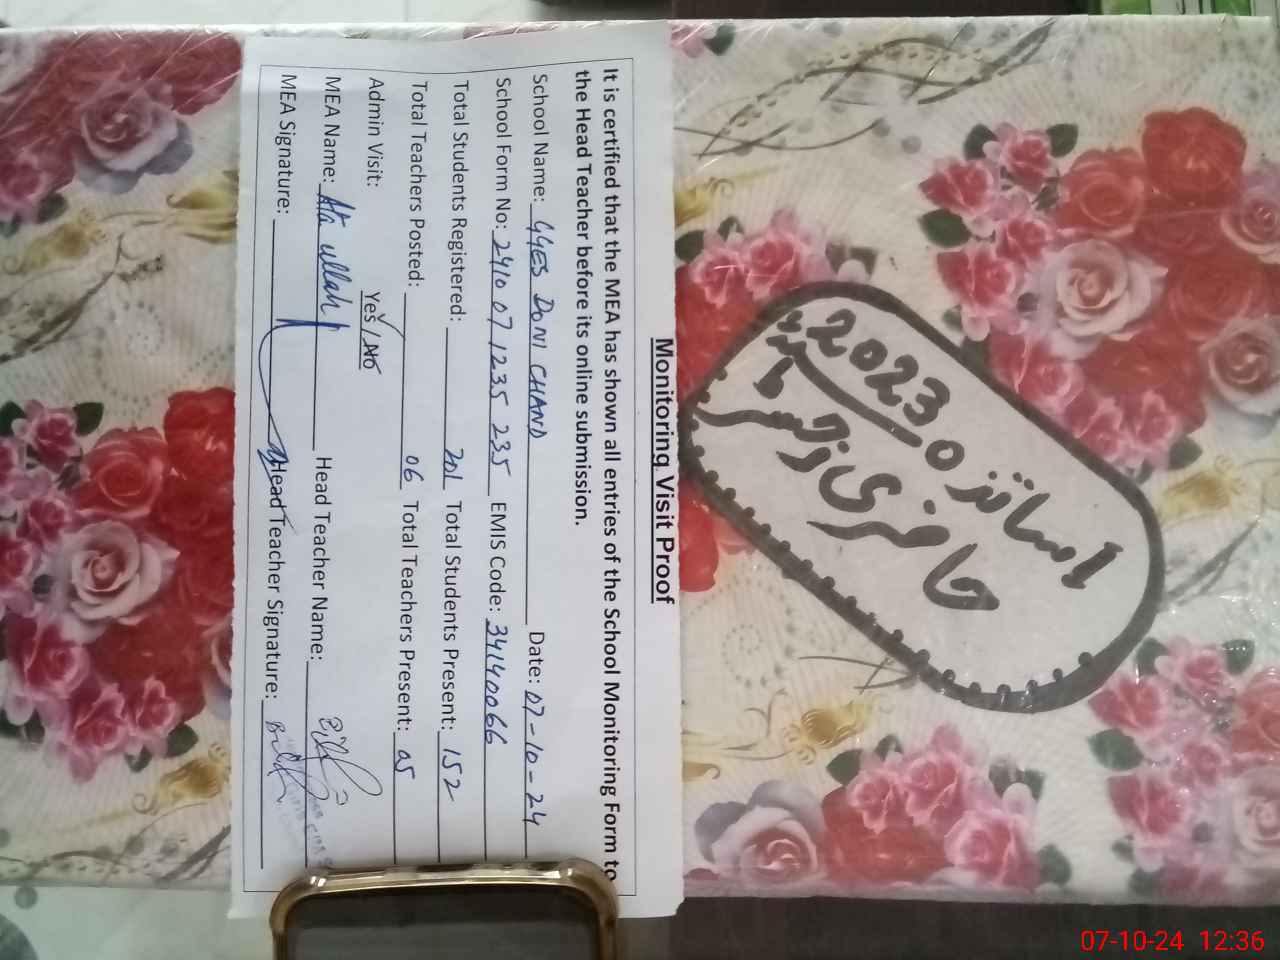 Monitoring Visit Proof
It is certified that the MEA has shown all entries of the School Monitoring Form to
the Head Teacher before its online submission.
School Name: GGES DONI CHAND Date: 07-10-24
School Form No: 2410 07 1235 235 EMIS Code: 34140066
Total Students Registered: 201 Total Students Present: 152
Total Teachers Posted: 06 Total Teachers Present: 05
Admin Visit: Yes / No
MEA Name: Ata ullah Head Teacher Name:
MEA Signature: Head Teacher Signature:
2023
اساتذہ
حاضری رجسٹر
07-10-24 12:36